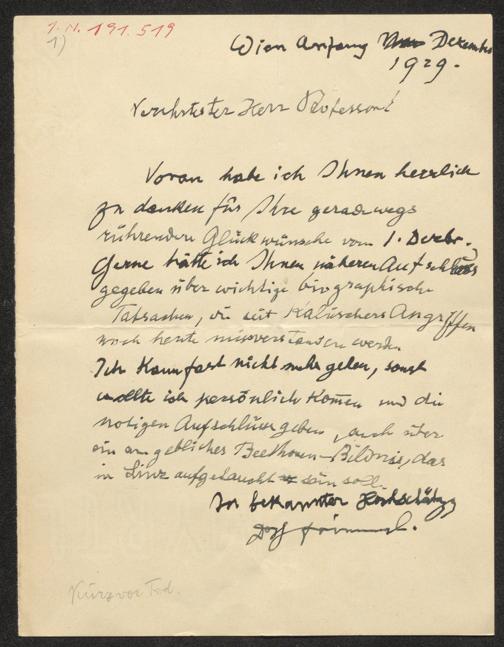 I.N. 191.519
1)
Wien Anfang Dezember
1929.
Verehrtester Herr Professor!
Voran habe ich Ihnen herzlich
zu danken für Ihre geradewegs
rührenden Glückwünsche vom 1. Dezbr.
Gerne hätte ich Ihnen näheren Aufschluss
gegeben über wichtige biographische
Tatsachen, die seit Kalischers Angriffen
noch heute missverstanden werden.
Ich kann fast nicht mehr gehen, sonst
wollte ich persönlich kommen und die
nötigen Aufschlüsse geben, auch über
ein angebliches Beethoven-Bildnis, das
in Linz aufgetaucht sein soll.
In bekannter Hochschätzg
Frimmel.
Kurz vor Tod.